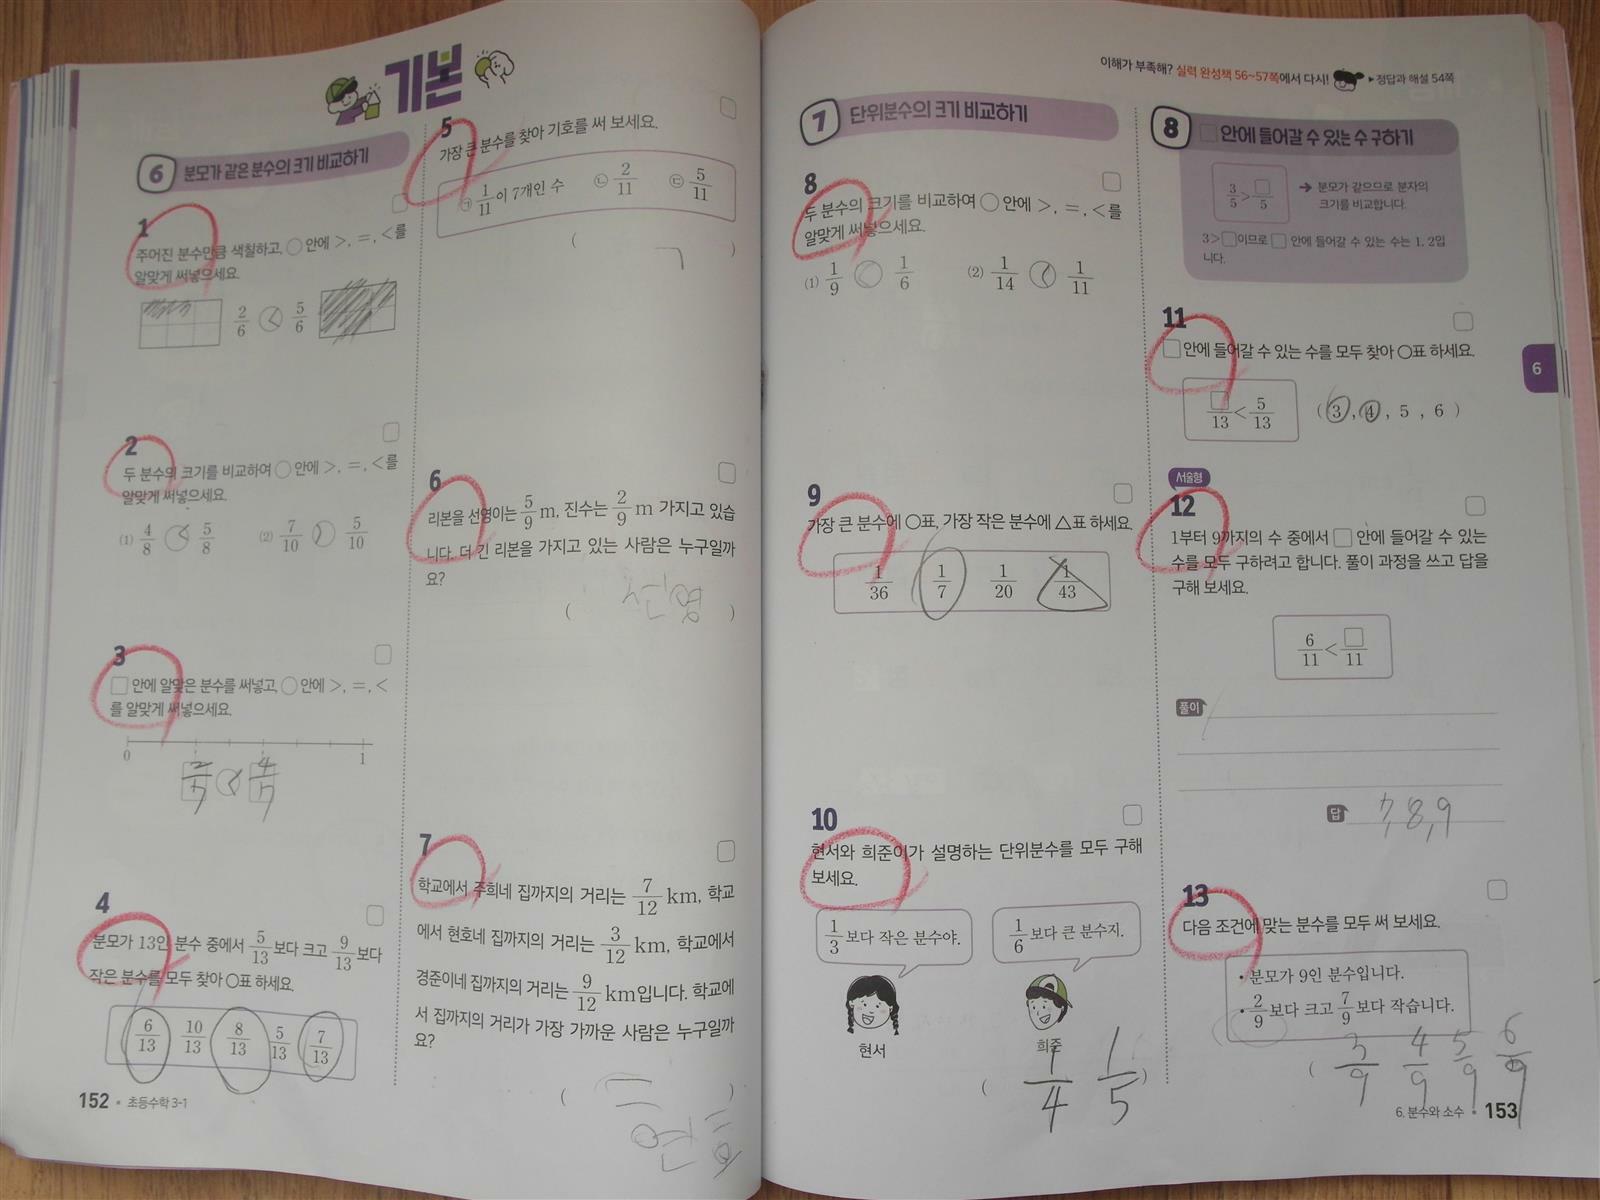 기본
6 분모가 같은 분수의 크기 비교하기
1
주어진 분수만큼 색칠하고, ○ 안에 >, =, <를
알맞게 써넣으세요.
2/6 < 5/6
2
두 분수의 크기를 비교하여 ○ 안에 >, =, <를
알맞게 써넣으세요.
(1) 4/8 < 5/8 (2) 7/10 > 5/10
3
□ 안에 알맞은 분수를 써넣고, ○ 안에 >, =, <
를 알맞게 써넣으세요.
0 1
4
분모가 13인 분수 중에서 5/13보다 크고 9/13보다
작은 분수를 모두 찾아 ○표 하세요.
6/13 10/13 8/13 5/13 7/13
152 • 초등수학 3-1
5
가장 큰 분수를 찾아 기호를 써 보세요.
㉠ 1/11이 7개인 수 ㉡ 2/11 ㉢ 5/11
( ㄱ )
6
리본을 선영이는 5/9 m, 진수는 2/9 m 가지고 있습
니다. 더 긴 리본을 가지고 있는 사람은 누구일까
요?
( )
7
학교에서 주희네 집까지의 거리는 7/12 km, 학교
에서 현호네 집까지의 거리는 3/12 km, 학교에서
경준이네 집까지의 거리는 9/12 km입니다. 학교에
서 집까지의 거리가 가장 가까운 사람은 누구일까
요?
( )
이해가 부족해? 실력 완성책 56~57쪽에서 다시! ▶정답과 해설 54쪽
7 단위분수의 크기 비교하기
8
두 분수의 크기를 비교하여 ○ 안에 >, =, <를
알맞게 써넣으세요.
(1) 1/9 < 1/6 (2) 1/14 < 1/11
9
가장 큰 분수에 ○표, 가장 작은 분수에 △표 하세요.
1/36 1/7 1/20 1/43
10
현서와 희준이가 설명하는 단위분수를 모두 구해
보세요.
1/3보다 작은 분수야.
1/6보다 큰 분수지.
현서 희준
( 1/4 1/5 )
8 □ 안에 들어갈 수 있는 수 구하기
3/5 > □/5 → 분모가 같으므로 분자의
크기를 비교합니다.
3 > □이므로 □ 안에 들어갈 수 있는 수는 1, 2입
니다.
11
□ 안에 들어갈 수 있는 수를 모두 찾아 ○표 하세요.
□/13 < 5/13 ( 3 , 4 , 5 , 6 )
6
서술형
12
1부터 9까지의 수 중에서 □ 안에 들어갈 수 있는
수를 모두 구하려고 합니다. 풀이 과정을 쓰고 답을
구해 보세요.
6/11 < □/11
풀이
답 7,8,9
13
다음 조건에 맞는 분수를 모두 써 보세요.
• 분모가 9인 분수입니다.
• 2/9보다 크고 7/9보다 작습니다.
( 3/9 4/9 5/9 6/9
6. 분수와 소수 • 153